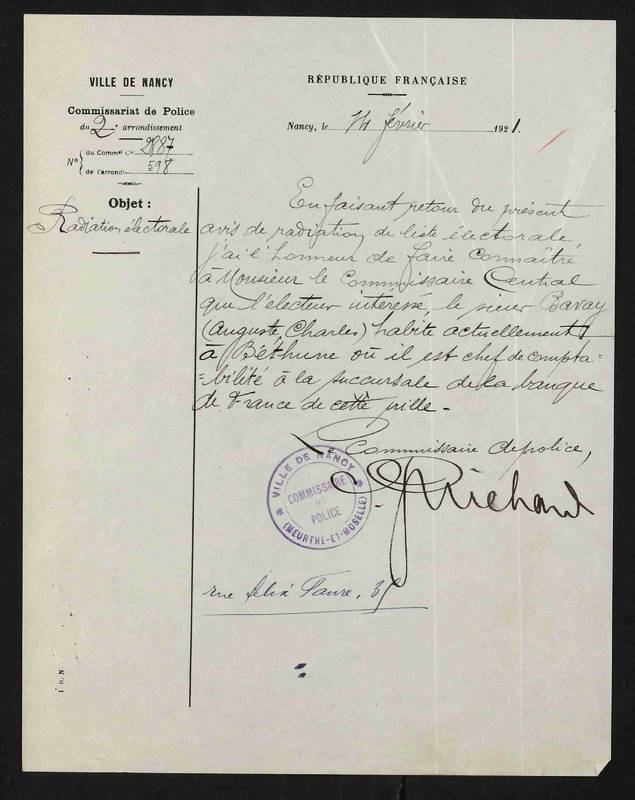 VILLE DE NANCY
Commissariat de Police
du 2e arrondissement
N° du Comm 2887
de l'arrond 598
Objet :
Radiation électorale
RÉPUBLIQUE FRANÇAISE
Nancy, le 14 février 1921.
En faisant retour du présent
avis de radiation de liste électorale,
j'ai l'honneur de faire connaître
à Monsieur le Commissaire Central
que l'électeur intéressé, le sieur Bavay
(Auguste, Charles) habite actuellement
à Béthune où il est chef de compta=
=bilité à la succursale de la banque
de France de cette ville -
Le Commissaire de police,
Richard
VILLE DE NANCY
COMMISSAIRE
DE
POLICE
(MEURTHE-ET-MOSELLE)
rue félix Faure,